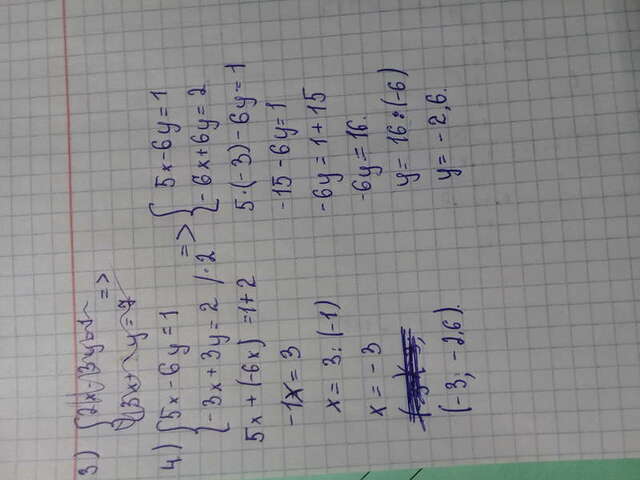 3) {2x - 3y = 1
=>
{3x + y = 7
4) {5x - 6y = 1
{-3x + 3y = 2 /·2
=> {5x - 6y = 1
{-6x + 6y = 2
5x + (-6x) = 1 + 2
-1x = 3
x = 3 : (-1)
x = -3
(-3; -2,6).
5·(-3) - 6y = 1
-15 - 6y = 1
-6y = 1 + 15
-6y = 16.
y = 16 : (-6)
y = -2,6.